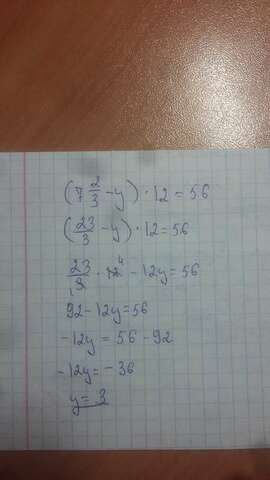 (7 2/3 - y) · 12 = 56
(23/3 - y) · 12 = 56
23/3 1 · 12 4 - 12y = 56
92 - 12y = 56
-12y = 56 - 92
-12y = -36
y = 3